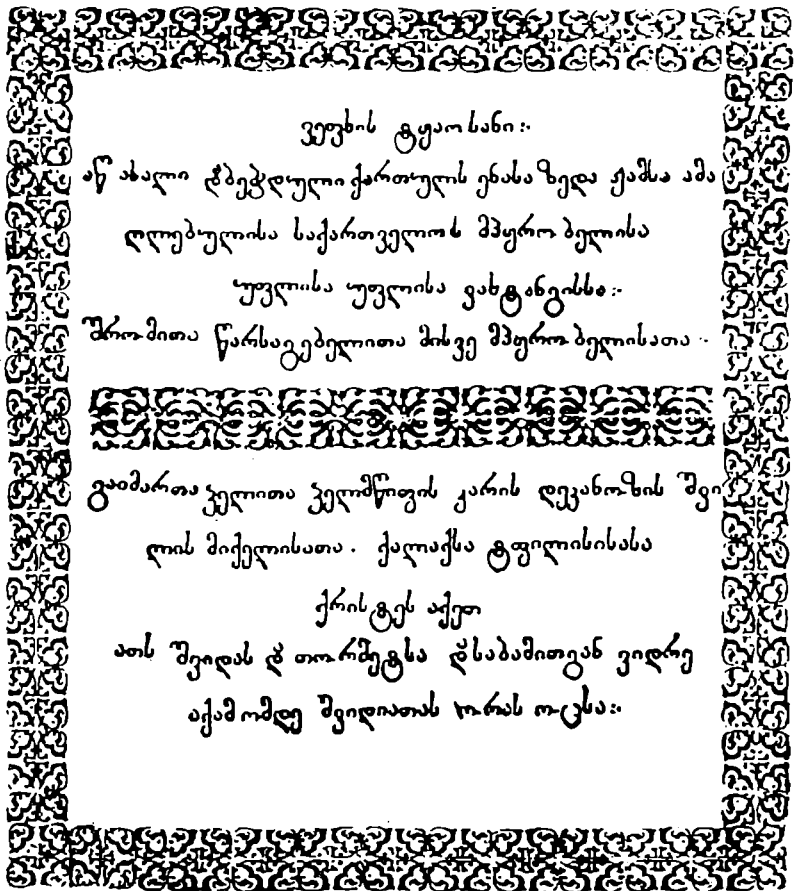 ვეფხის ტყაოსანი:·
აწ ახალი დაბეჭდილი ქართულს ენასა ზედა ჟამსა ამა
ღლებულისა საქართველოს მპყრობელისა
უფლიისა უფლისა ვახტანგისსა:·
შრომითა წარსაგებელითა მისვე მპყრობელისათა ·
გაიმართა ჴელითა ჴელმწიფის კარის დეკანოზის შვი
ლის მიქელისათა . ქალაქსა ტფილისისასა
ქრისტეს აქეთ
ათს შვიდას და თორმეტსა დასაბამითგან ვიდრე
აქამომდე შვიდიათას ორას ოცსა:·